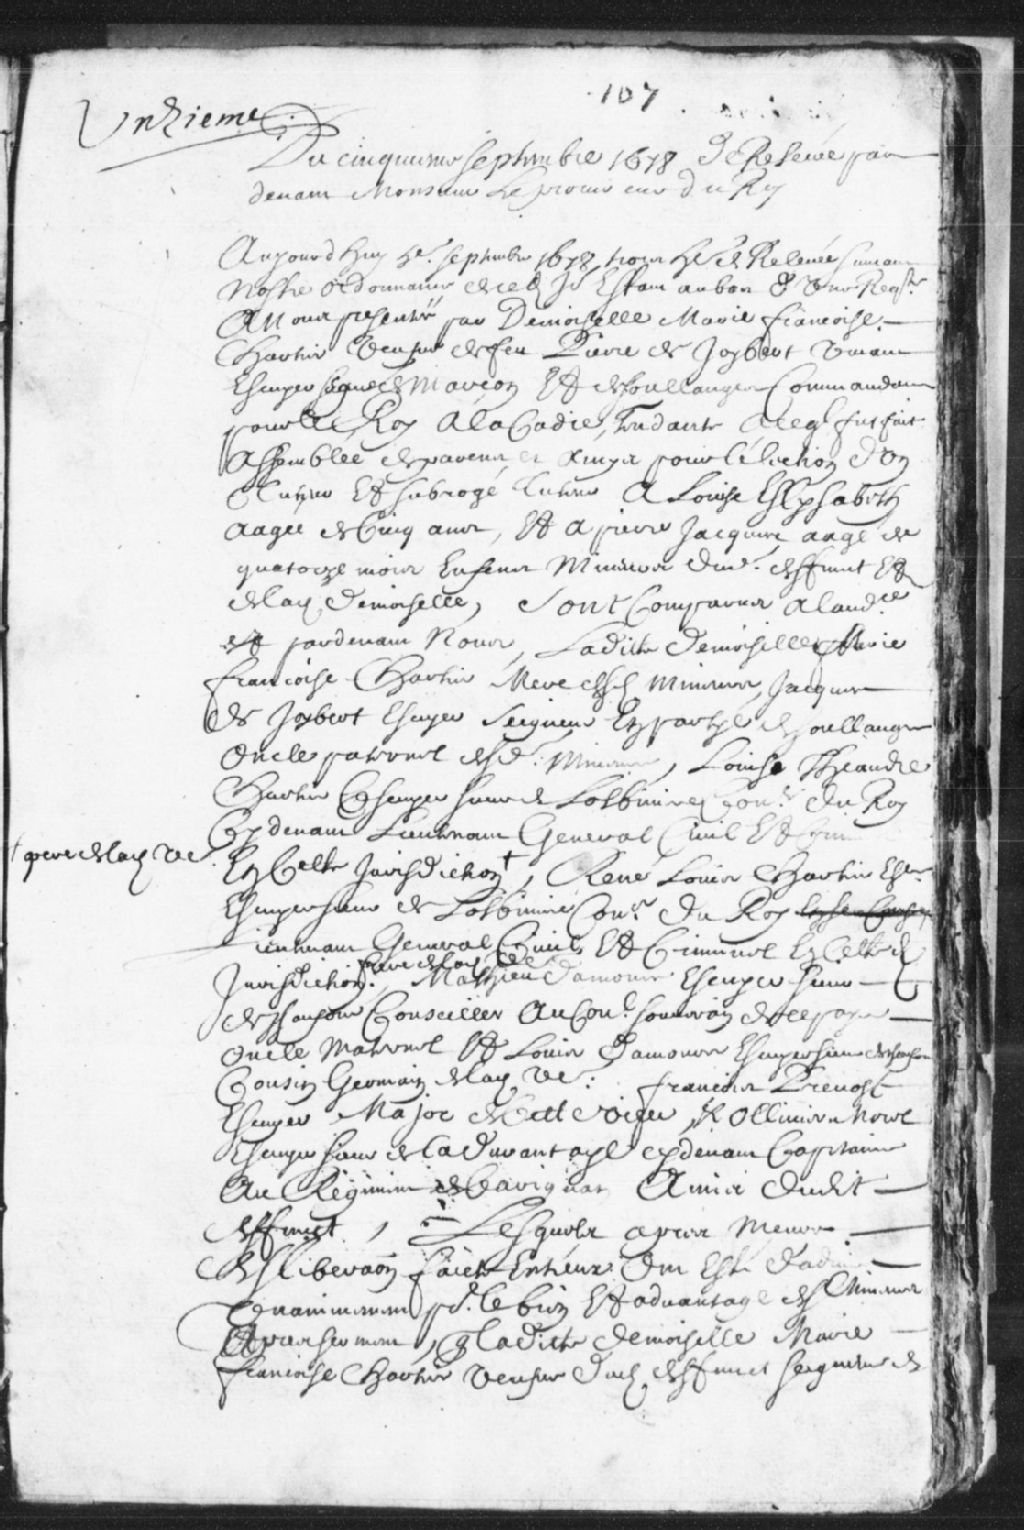 107
Unzieme
Du cinquieme septembre 1678 de Relevée par
devant Monsieur Le procureur du Roy
Aujourd'huy 5e. septembre 1678, heure de Relevée suivant
Nostre ordonnance de ce jour Estant au bas d'une Reqte
A Nous presentée par Demoiselle Marie francoise
Chartier veufve de feu Pierre de Joybert vivant
Escuyer seigneur de Marson Et de soullanges Commandant
pour le Roy A la Cadie, Tendante A ce quil fut fait
Assemblée de parens et amys pour l'élection d'un
Tuteur Et subrogé tuteur A Louise Elisabeth
aagée de Cinq ans, Et A pierre Jacques aagé de
quatorze mois Enfens Mineurs dud. deffunct Et
de lad. demoiselle, Sont Comparus A laudce
et pardevant Nous, Ladicte demoiselle Marie
francoise Chartier Mere desd. Mineurs, Jacques
de Joybert Escuyer Seigneur En partye de soullanges
Oncle paternel desd. Mineurs, Louis Theandre
Chartier Escuyer sieur de Lotbiniere Conr. du Roy
Cy devant Lieutenant General Civil Et Crim
† pere de lad. ve.
En Cette Jurisdiction †, René Louis Chartier
Escuyer sieur de Lotbiniere Conr. du Roy
Lieutenant General Civil Et Criminel En Cette de
frere de lad. ve
Jurisdiction. Mathieu damours Escuyer sieur
de chaufour Conseiller Au Conl. souverain de ce pays
Oncle Maternel Et Louis Damours Escuyer sieur de chaufour
Cousin Germain de lad. ve. francois Prevost
Escuyer Major de Cette ville, Et Ollivier Morel
Escuyer sieur de la durantaye cydevant Capitaine
Au Regiment de Carignan Amis dudit
deffunct, Lesquels apres Meure
Deliberaon faicte Entr'eux Ont Esté d'advis
Unanimement pr. le bien Et advantage desd. Mineurs
Apres serment, q ladicte demoiselle Marie
francoise Chartier veufve dud. deffunct seigneur de